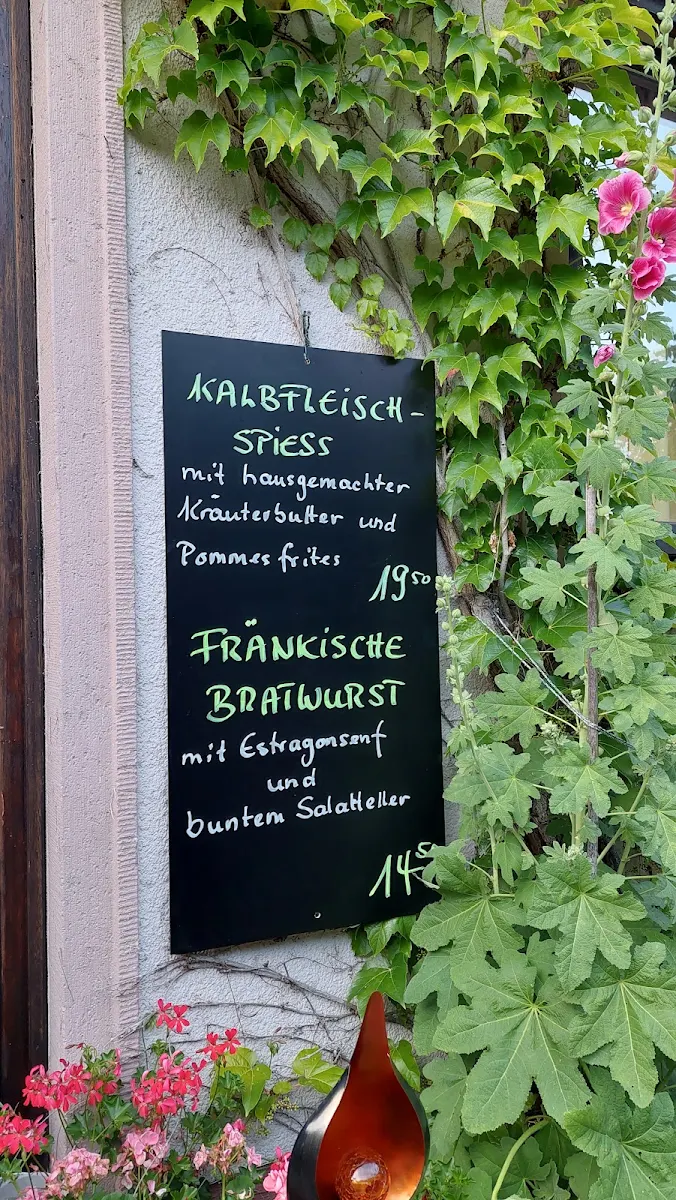 KALBFLEISCH-
SPIESS
mit hausgemachter
Kräuterbutter und
Pommes frites
19⁵⁰
FRÄNKISCHE
BRATWURST
mit Estragonsenf
und
buntem Salatteller
14⁵